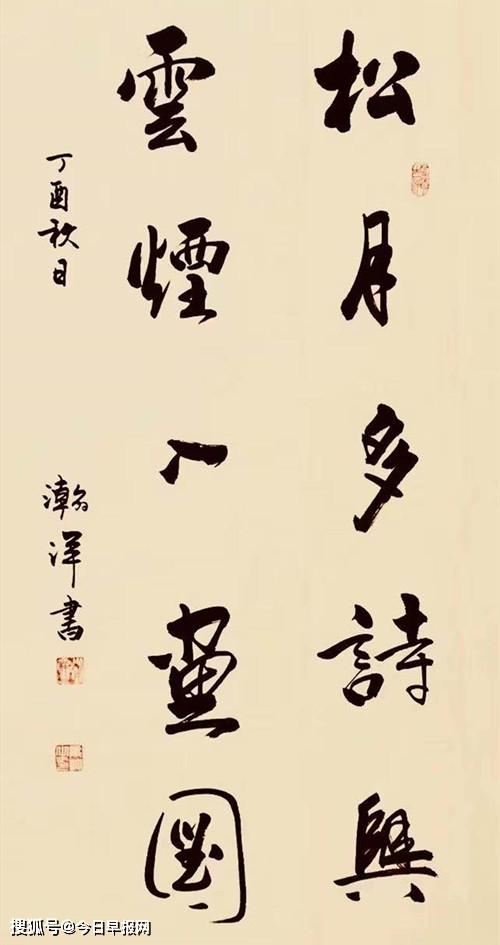 松月多詩興
雲煙入畫圖
丁酉秋日
瀚洋書
搜狐号@今日早报网